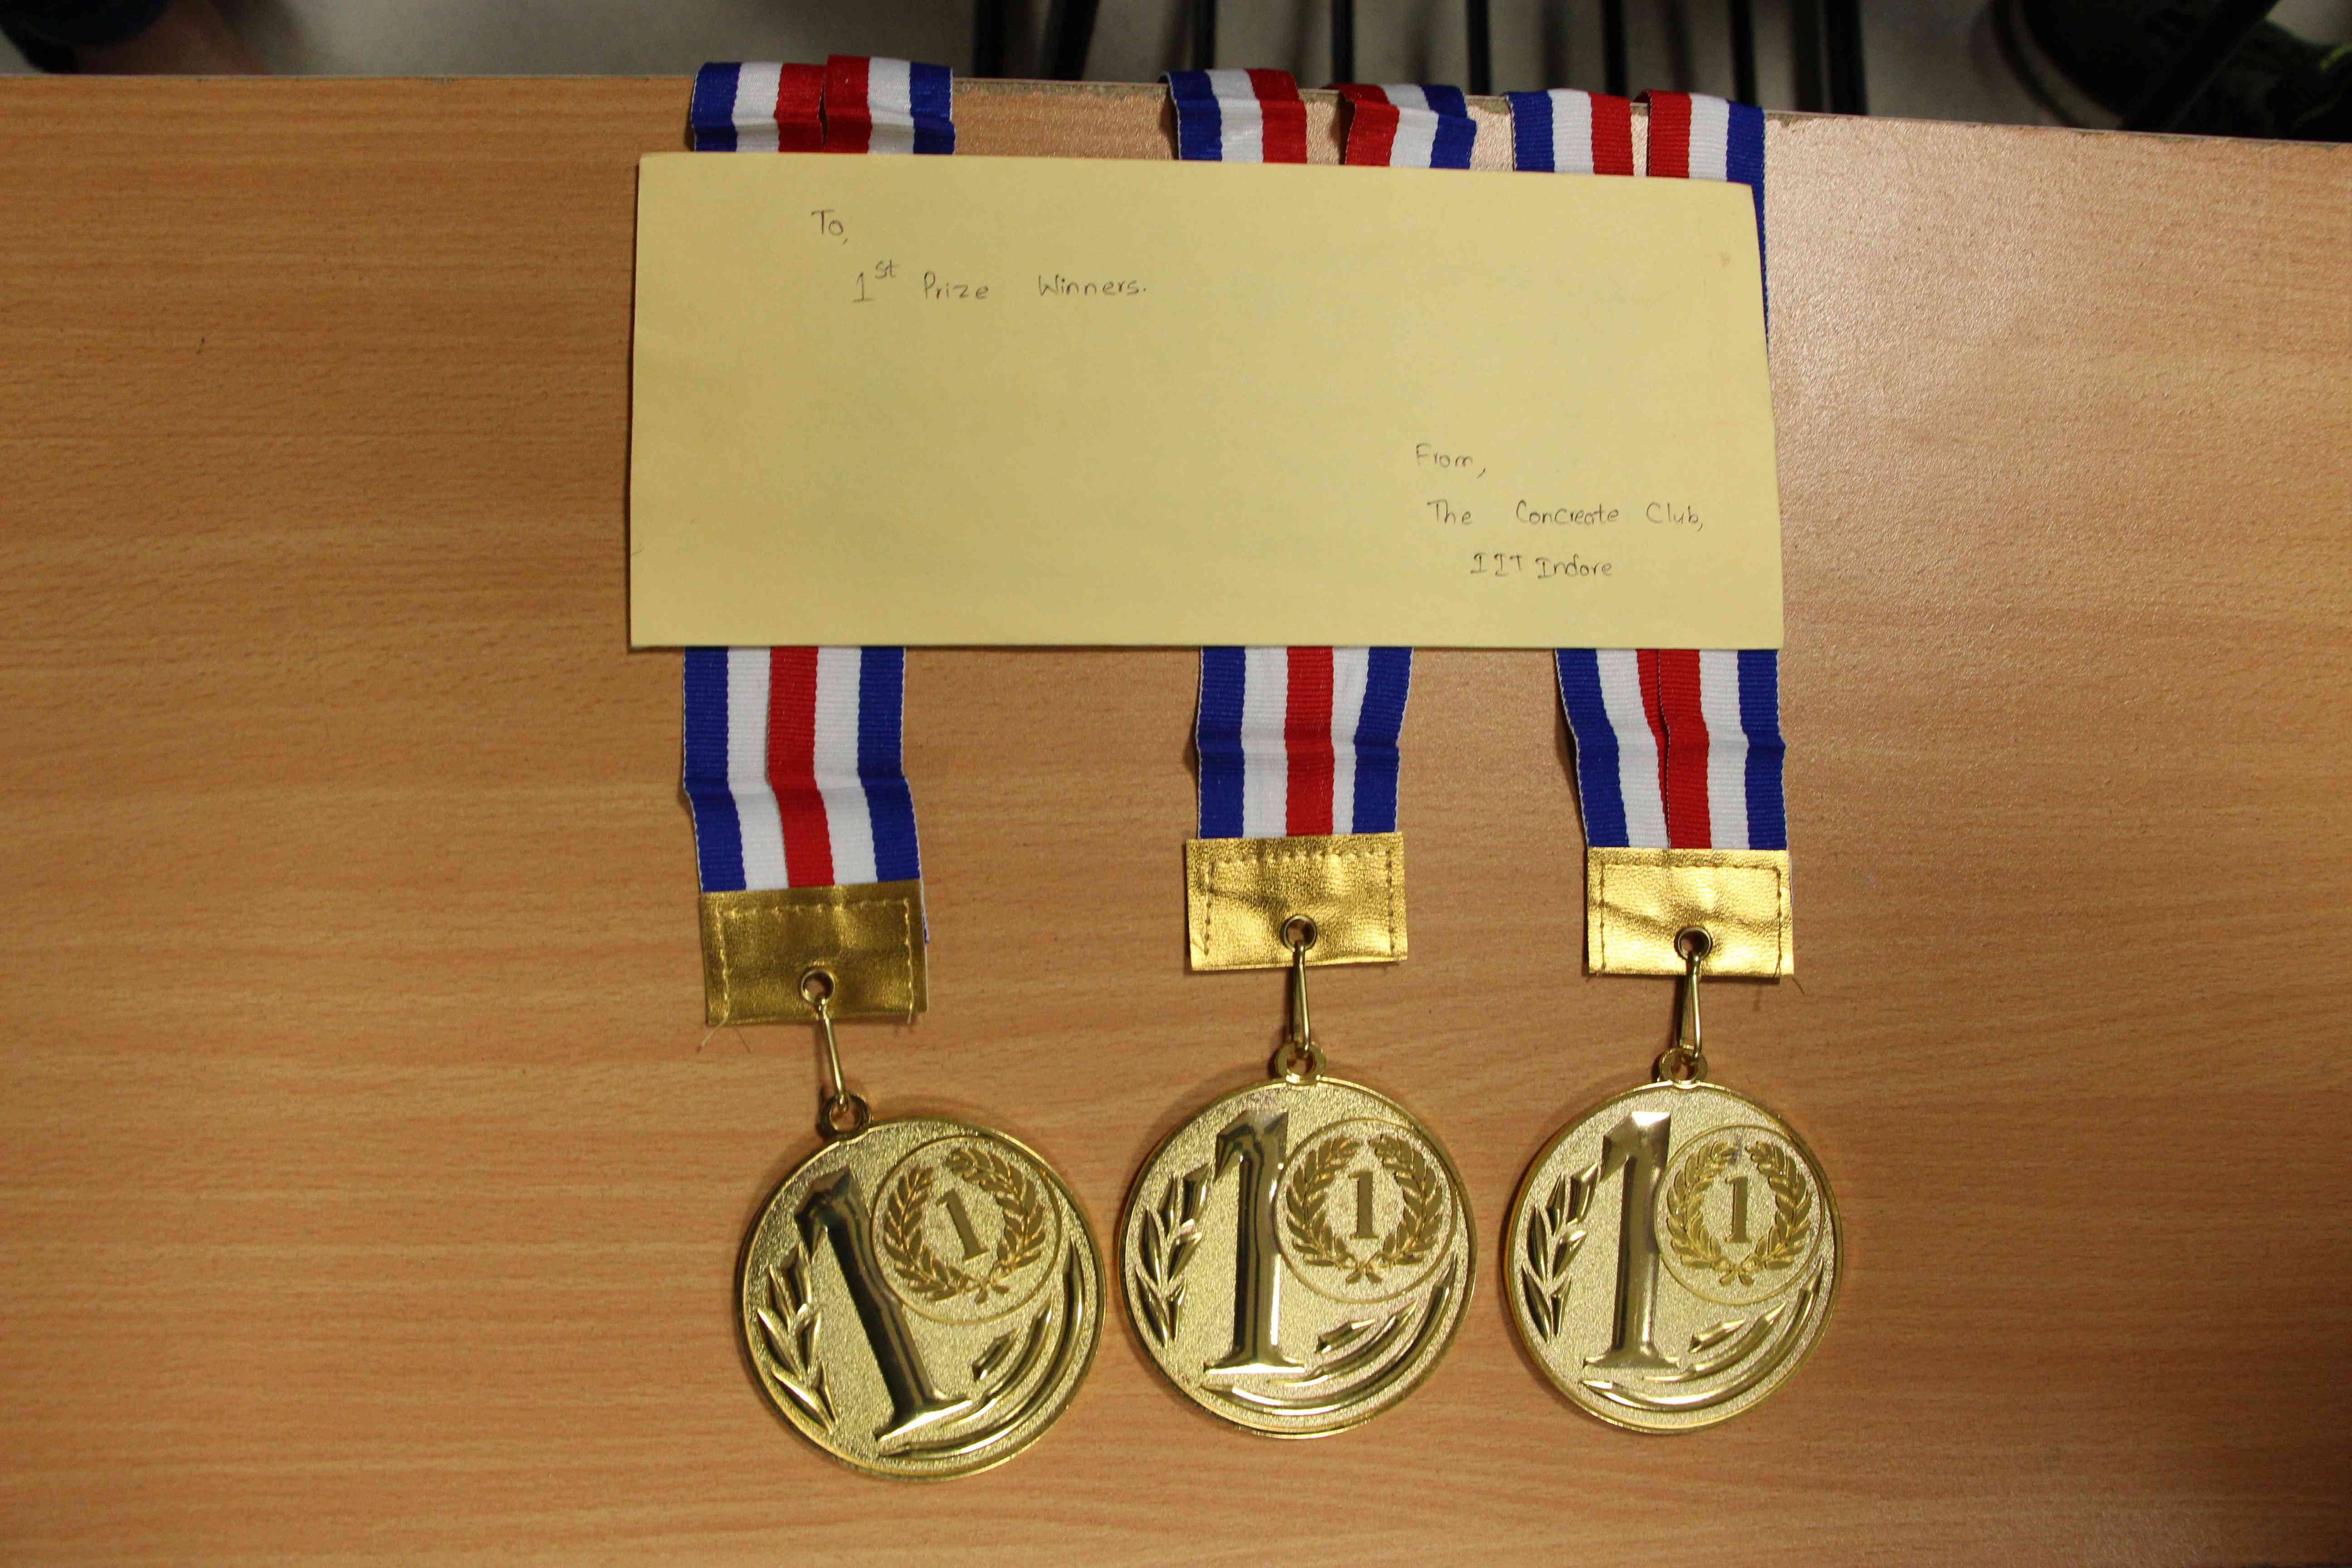 To,
1st Prize Winners.
From,
The Concreate Club,
IIT Indore
1
1
1
1
1
1